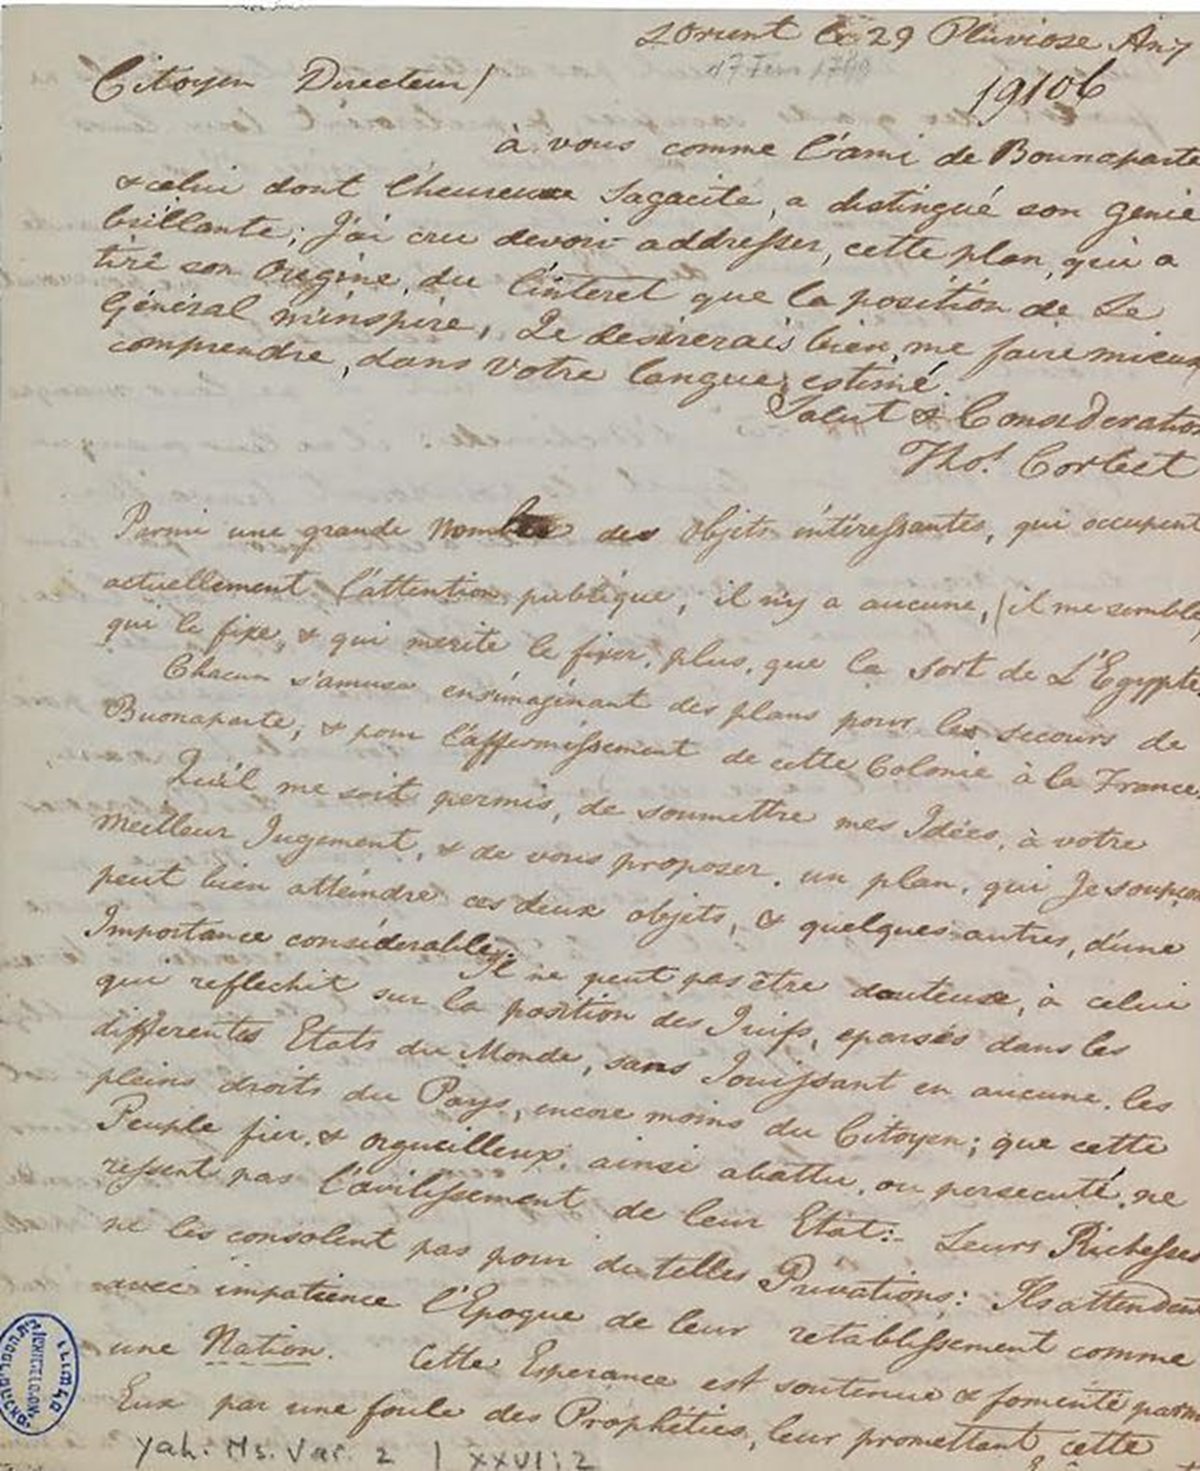 LOrient le 29 Pluviose An 7
17 Fev. 1799
Citoyen Directeur/
19106
à vous comme l'ami de Bounaparte
& celui dont l'heureuse Sagacite, a distingué son Génie
brillante; J'ai cru devoir addresser, cette plan, qui a
tiré son Origine, du l'interet que la position de Le
Général m'inspire, Je desirerais bien, me faire mieux
comprendre, dans Votre langue, estimé.
Salut & Consideration
Thos. Corbet
Parmi une grande Nombre des Objets intéressantes, qui occupent
actuellement l'attention publique, il n'y a aucune, (il me semble
qui le fixe, & qui merite le fixer, plus, que la Sort de L'Egypte
Chacun s'amuse ens'imaginant des plans pour les secours de
Buonaparte; & pour l'affermissement de cette Colonie à la France.
Qu'il me soit permis, de soumettre mes Idées, à votre
meilleur Jugement, & de vous proposer, un plan, qui Je soupçon
peut bien atteindre ces deux objets, & quelques autres, d'une
Importance considerable.
Il ne peut pas être douteuse, à celui
qui reflechit sur la position des Juifs, eparsés dans les
differentes Etats du Monde, sans Jouissant en aucune, les
pleins droits du Pays, encore moins du Citoyen; que cette
Peuple fier, & orgueilleux, ainsi abattu, ou persecuté, ne
ressent pas l'avilissement de leur Etat:- Leurs Richesses
ne les consolent pas pour de telles Privations: Ils attendent
avec impatience l'Epoque de leur retablissement comme
une Nation. Cette Esperance est soutenue & fomenté parmi
Eux par une foule des Prophéties, leur promettant, cette
Yah. Ms. Var. 2 | XXVI:2